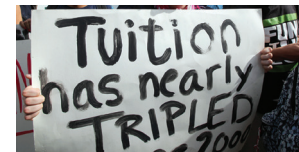 Tuition
has nearly
TRIPLED
2000
FUN